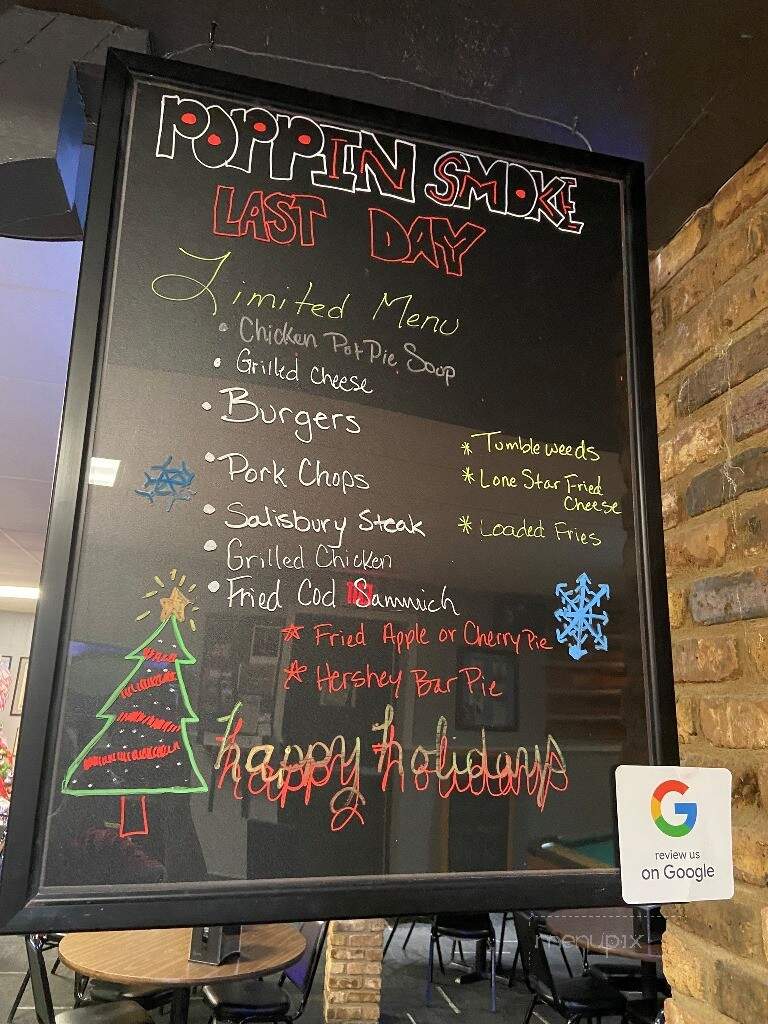 POPPIN SMOKE
LAST DAY
Limited Menu
• Chicken Pot Pie Soup
• Grilled Cheese
• Burgers
• Pork Chops
• Salisbury Steak
• Grilled Chicken
• Fried Cod Sammich
* Tumbleweeds
* Lone Star Fried
Cheese
* Loaded Fries
* Fried Apple or Cherry Pie
* Hershey Bar Pie
happy holidays
G
review us
on Google
menupix